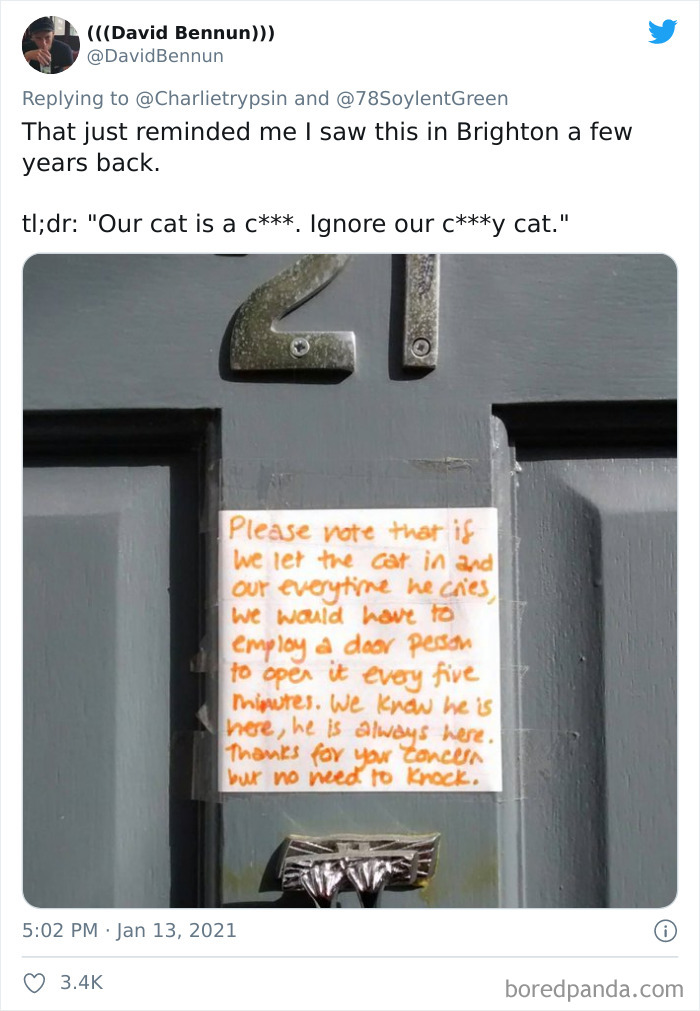 (((David Bennun)))
@DavidBennun
Replying to @Charlietrypsin and @78SoylentGreen
That just reminded me I saw this in Brighton a few
years back.
tl;dr: "Our cat is a c***. Ignore our c***y cat."
21
Please note that if
we let the cat in and
out everytime he cries,
we would have to
employ a door person
to open it every five
minutes. We know he is
here, he is always here.
Thanks for your concern
but no need to knock.
5:02 PM · Jan 13, 2021
3.4K
boredpanda.com